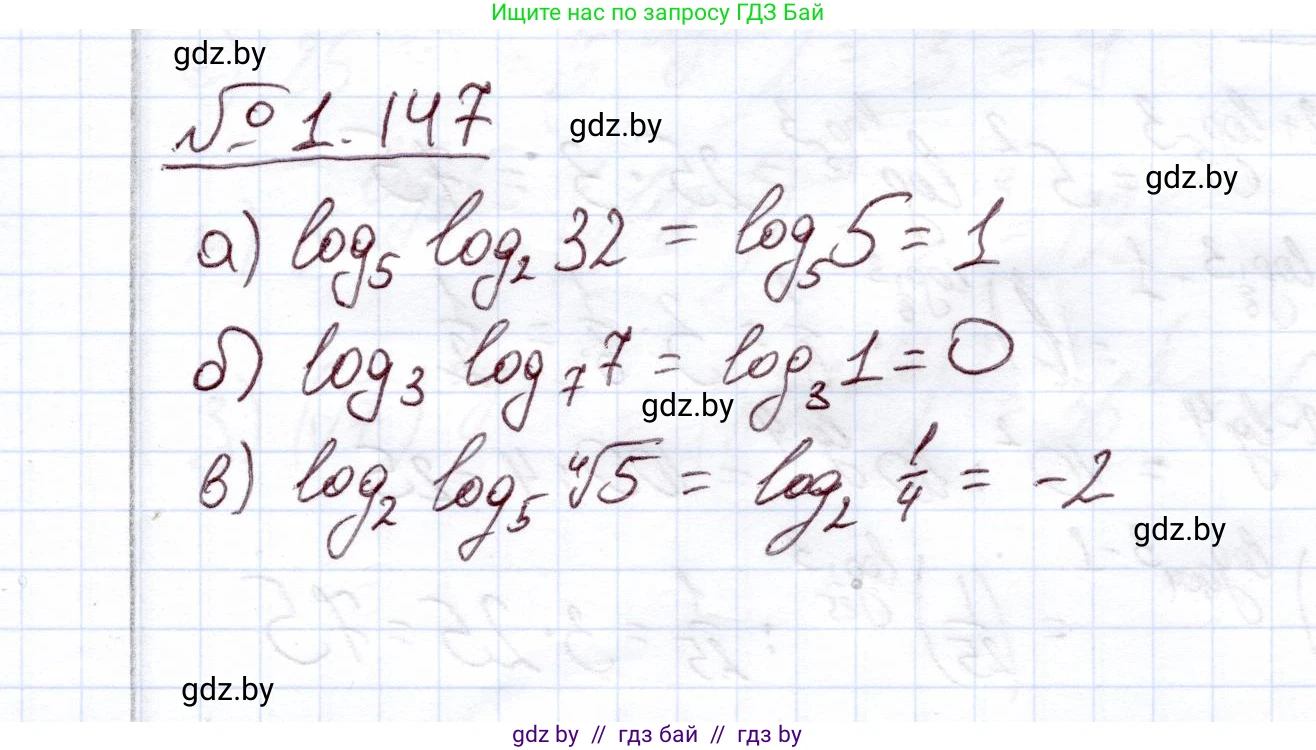 Ищите нас по запросу ГДЗ Бай
gdz.by
№ 1.147
gdz.by
gdz.by
а) log₅ log₂ 32 = log₅ 5 = 1
б) log₃ log₇ 7 = log₃ 1 = 0
gdz.by
в) log₂ log₅ ⁴√5 = log₂ 1/4 = -2
gdz.by
gdz.by
gdz by // гдз бай // гдз by